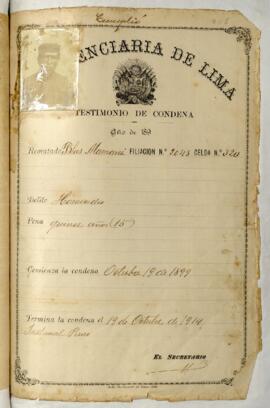 Cumplió
PENCIARIA DE LIMA
TESTIMONIO DE CONDENA
Año de 189
Rematado Blas Mamani FILIACION N.° 2045 CELDA N.° 320
Delito Homicidio
Pena quince años (15)
Comienza la condena Octubre 19 de 1899
Termina la condena el 19 de Octubre de 1914
Tribunal Puno
EL SECRETARIO